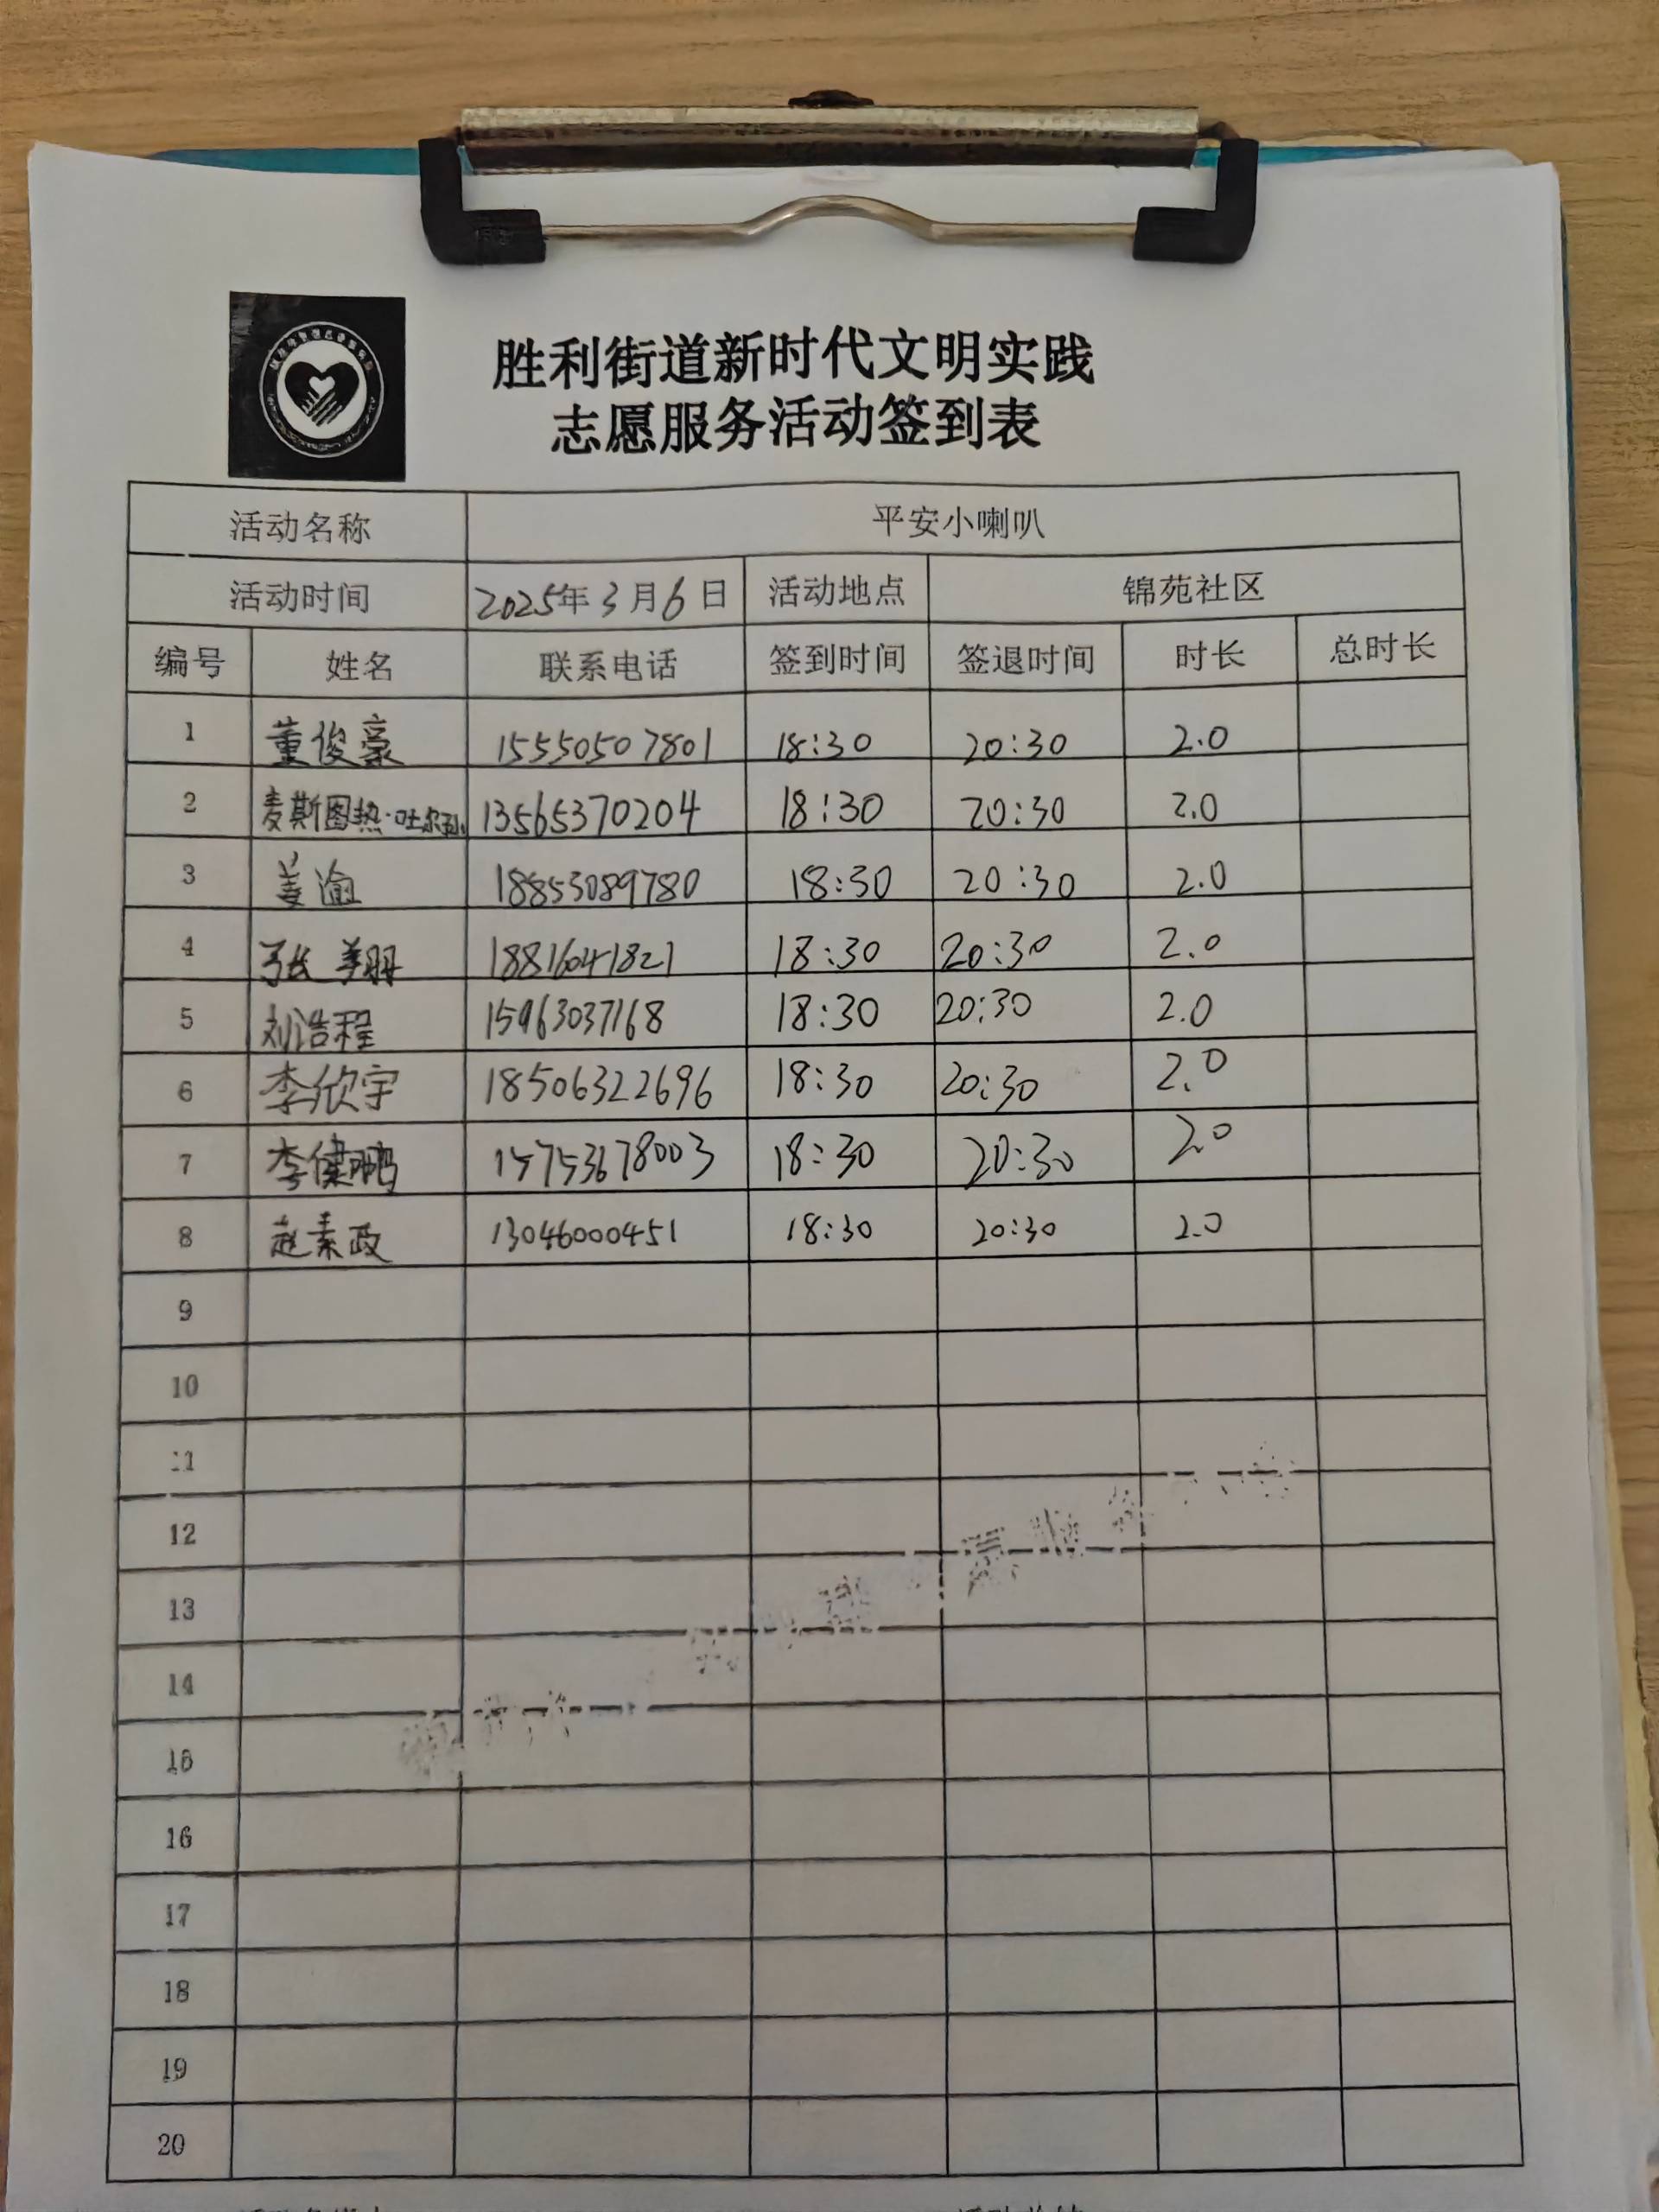 胜利街道新时代文明实践
志愿服务活动签到表
活动名称 平安小喇叭
活动时间 2025年3月6日 活动地点 锦苑社区
编号 姓名 联系电话 签到时间 签退时间 时长 总时长
1 董俊豪 15550507801 18:30 20:30 2.0
2 麦斯图热·吐尔孙 13565370204 18:30 20:30 2.0
3 姜渝 18853089780 18:30 20:30 2.0
4 张美玥 18816041821 18:30 20:30 2.0
5 刘浩程 15963037168 18:30 20:30 2.0
6 李欣宇 18506322696 18:30 20:30 2.0
7 李健鹏 15753678003 18:30 20:30 2.0
8 赵素政 13046000451 18:30 20:30 2.0
9
10
11
12
13
14
15
16
17
18
19
20